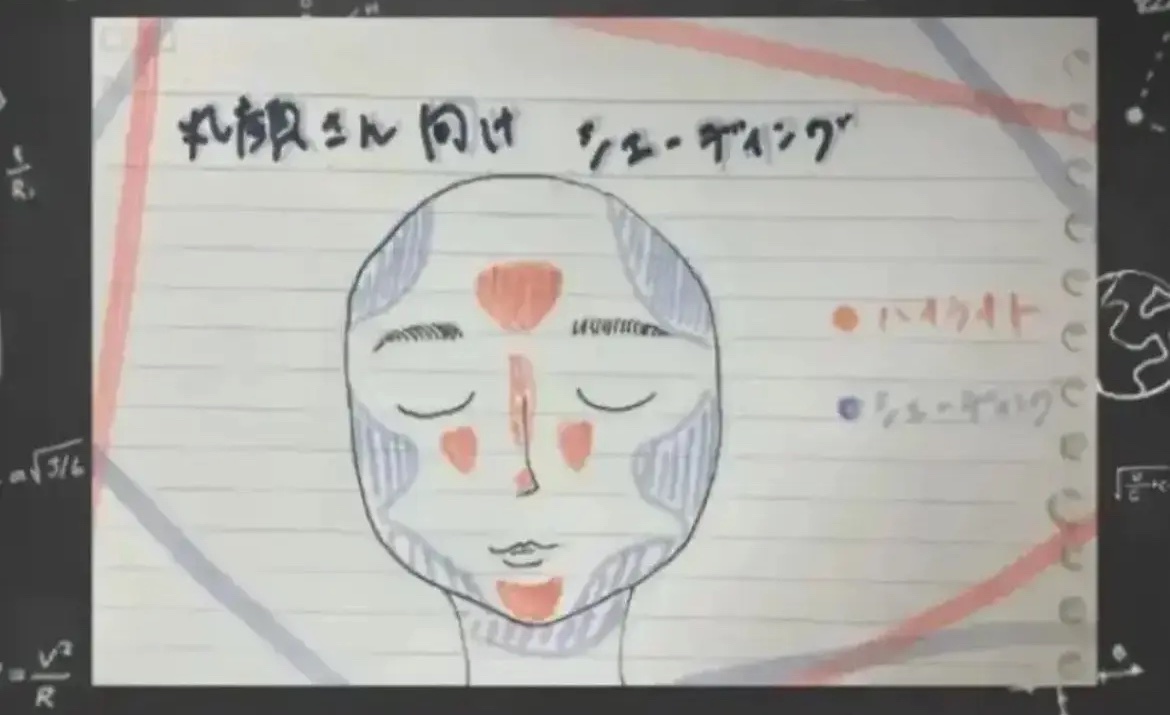 丸顔さん向け シェーディング
ハイライト
シェーディング
1/R₁
a√3/6
= V²/R